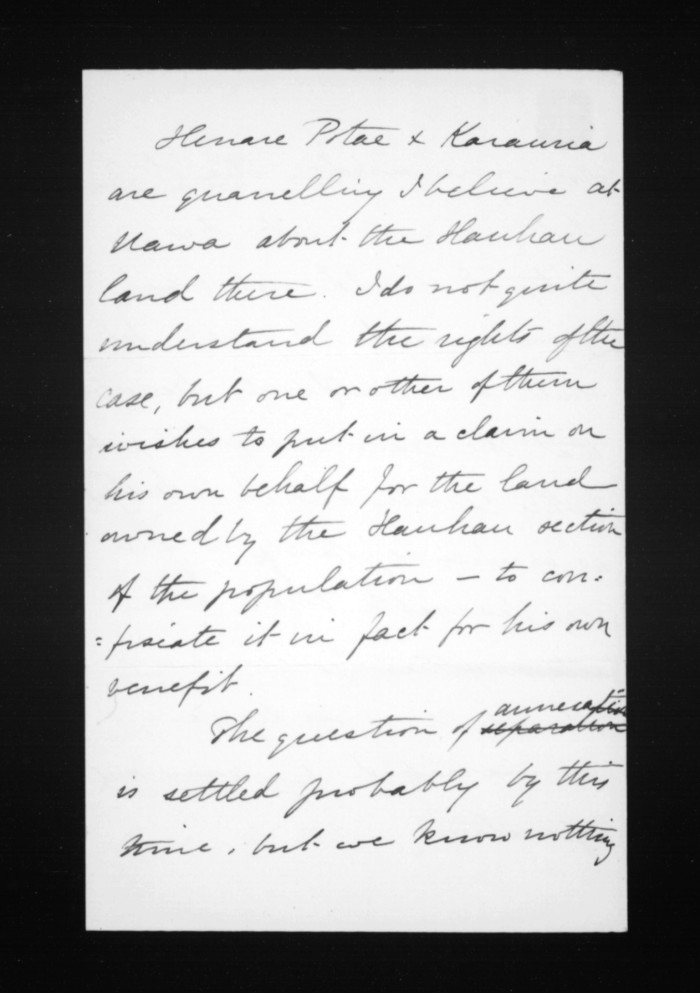 Henare Potae & Karauria
are quarrelling I believe at
Uawa about the Hauhau
land there. I do not quite
understand the rights of the
case, but one or other of them
wishes to put in a claim on
his own behalf for the land
owned by the Hauhau section
of the population – to con=
=fiscate it in fact for his own
benefit.
annexation
The question of separation
is settled probably by this
time, but we know nothing